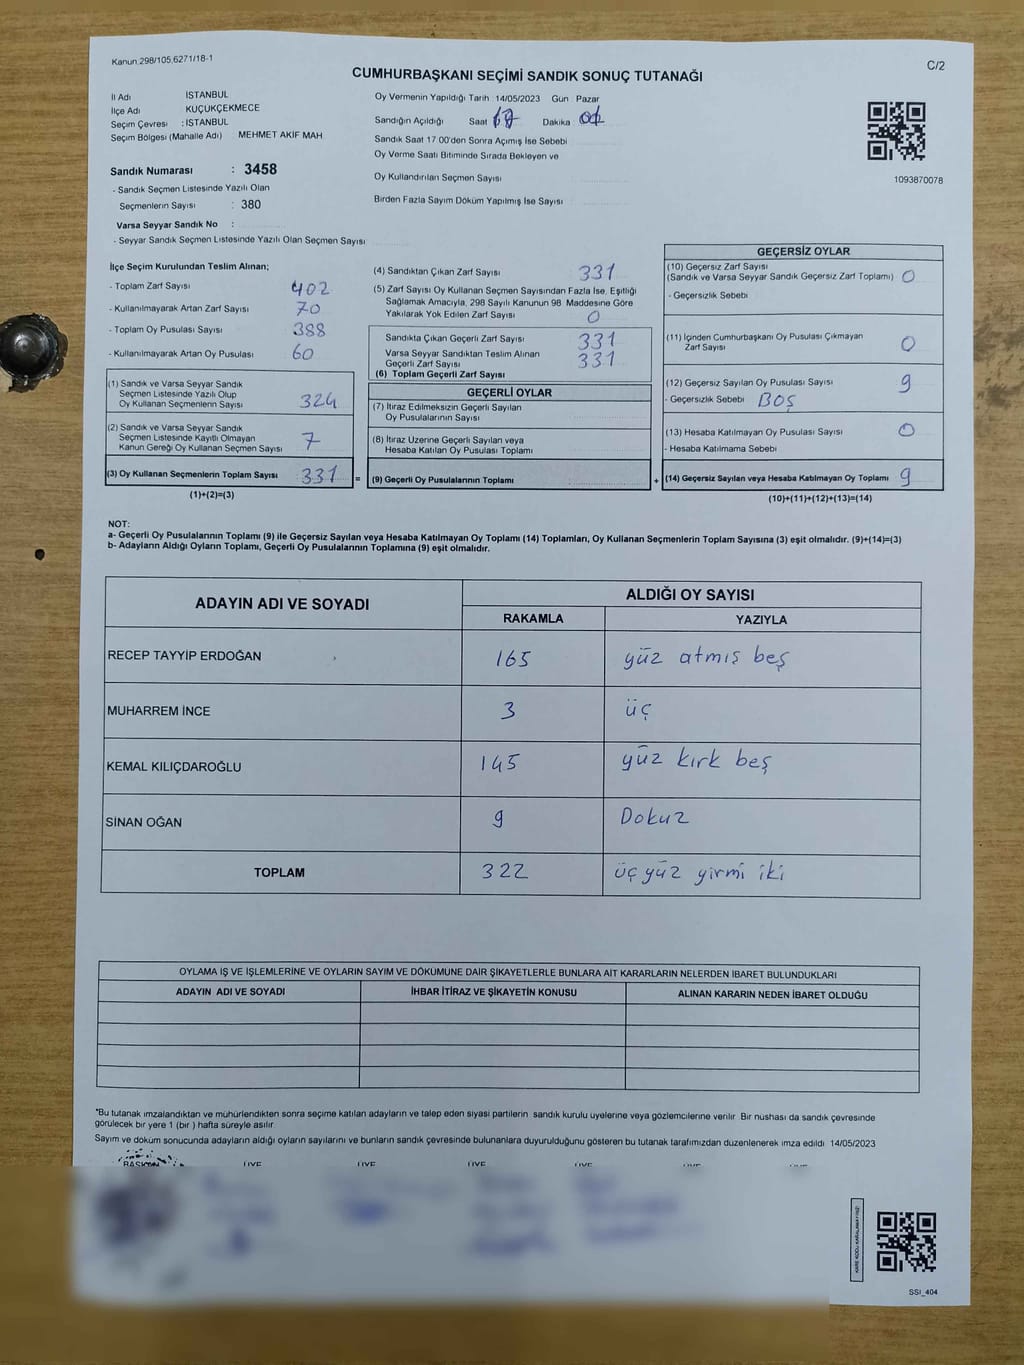 Kanun 298/105,6271/18-1
C/2
CUMHURBAŞKANI SEÇİMİ SANDIK SONUÇ TUTANAĞI
İl Adı İSTANBUL
İlçe Adı KÜÇÜKÇEKMECE
Seçim Çevresi : İSTANBUL
Seçim Bölgesi (Mahalle Adı) : MEHMET AKİF MAH.
Oy Vermenin Yapıldığı Tarih : 14/05/2023 Gün Pazar
Sandığın Açıldığı Saat Dakika
Sandık Saat 17 00'den Sonra Açımış İse Sebebi
Oy Verme Saati Bitiminde Sırada Bekleyen ve
Oy Kullandırılan Seçmen Sayısı
Birden Fazla Sayım Döküm Yapılmış İse Sayısı
1093870078
Sandık Numarası : 3458
- Sandık Seçmen Listesinde Yazılı Olan
Seçmenlerin Sayısı : 380
Varsa Seyyar Sandık No :
- Seyyar Sandık Seçmen Listesinde Yazılı Olan Seçmen Sayısı
İlçe Seçim Kurulundan Teslim Alınan;
- Toplam Zarf Sayısı 402
- Kullanılmayarak Artan Zarf Sayısı 70
- Toplam Oy Pusulası Sayısı 388
- Kullanılmayarak Artan Oy Pusulası 60
(1) Sandık ve Varsa Seyyar Sandık
Seçmen Listesinde Yazılı Olup
Oy Kullanan Seçmenlerin Sayısı 324
(2) Sandık ve Varsa Seyyar Sandık
Seçmen Listesinde Kayıtlı Olmayan
Kanun Gereği Oy Kullanan Seçmen Sayısı 7
(3) Oy Kullanan Seçmenlerin Toplam Sayısı 331 =
(1)+(2)=(3)
(4) Sandıktan Çıkan Zarf Sayısı 331
(5) Zarf Sayısı Oy Kullanan Seçmen Sayısından Fazla İse, Eşitliği
Sağlamak Amacıyla, 298 Sayılı Kanunun 98. Maddesine Göre
Yakılarak Yok Edilen Zarf Sayısı 0
Sandıkta Çıkan Geçerli Zarf Sayısı 331
Varsa Seyyar Sandıktan Teslim Alınan
Geçerli Zarf Sayısı 331
(6) Toplam Geçerli Zarf Sayısı
GEÇERLİ OYLAR
(7) İtiraz Edilmeksizin Geçerli Sayılan
Oy Pusulalarının Sayısı
(8) İtiraz Üzerine Geçerli Sayılan veya
Hesaba Katılan Oy Pusulası Toplamı
(9) Geçerli Oy Pusulalarının Toplamı +
GEÇERSİZ OYLAR
(10) Geçersiz Zarf Sayısı
(Sandık ve Varsa Seyyar Sandık Geçersiz Zarf Toplamı) 0
- Geçersizlik Sebebi
(11) İçinden Cumhurbaşkanı Oy Pusulası Çıkmayan
Zarf Sayısı 0
(12) Geçersiz Sayılan Oy Pusulası Sayısı 9
- Geçersizlik Sebebi BOŞ
(13) Hesaba Katılmayan Oy Pusulası Sayısı 0
- Hesaba Katılmama Sebebi
(14) Geçersiz Sayılan veya Hesaba Katılmayan Oy Toplamı 9
(10)+(11)+(12)+(13)=(14)
NOT:
a- Geçerli Oy Pusulalarının Toplamı (9) ile Geçersiz Sayılan veya Hesaba Katılmayan Oy Toplamı (14) Toplamları, Oy Kullanan Seçmenlerin Toplam Sayısına (3) eşit olmalıdır. (9)+(14)=(3)
b- Adayların Aldığı Oyların Toplamı, Geçerli Oy Pusulalarının Toplamına (9) eşit olmalıdır.
ADAYIN ADI VE SOYADI
ALDIĞI OY SAYISI
RAKAMLA YAZIYLA
RECEP TAYYİP ERDOĞAN 165 yüz atmış beş
MUHARREM İNCE 3 üç
KEMAL KILIÇDAROĞLU 145 yüz kırk beş
SİNAN OĞAN 9 Dokuz
TOPLAM 322 üç yüz yirmi iki
OYLAMA İŞ VE İŞLEMLERİNE VE OYLARIN SAYIM VE DÖKÜMÜNE DAİR ŞİKAYETLERLE BUNLARA AİT KARARLARIN NELERDEN İBARET BULUNDUKLARI
ADAYIN ADI VE SOYADI İHBAR İTİRAZ VE ŞİKAYETİN KONUSU ALINAN KARARIN NEDEN İBARET OLDUĞU
*Bu tutanak imzalandıktan ve mühürlendikten sonra seçime katılan adayların ve talep eden siyasi partilerin sandık kurulu üyelerine veya gözlemcilerine verilir. Bir nüshası da sandık çevresinde
görülecek bir yere 1 (bir ) hafta süreyle asılır.
Sayım ve döküm sonucunda adayların aldığı oyların sayılarını ve bunların sandık çevresinde bulunanlara duyurulduğunu gösteren bu tutanak tarafımızdan düzenlenerek imza edildi 14/05/2023
BAŞKAN ÜYE ÜYE ÜYE ÜYE ÜYE ÜYE
KARE KODU KARALAMAYINIZ!
SSI_404